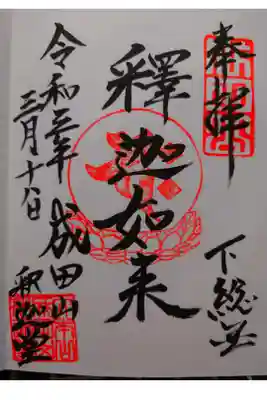 奉拝
下総
釋迦如来
成田山
釈迦堂
令和三年
三月十八日